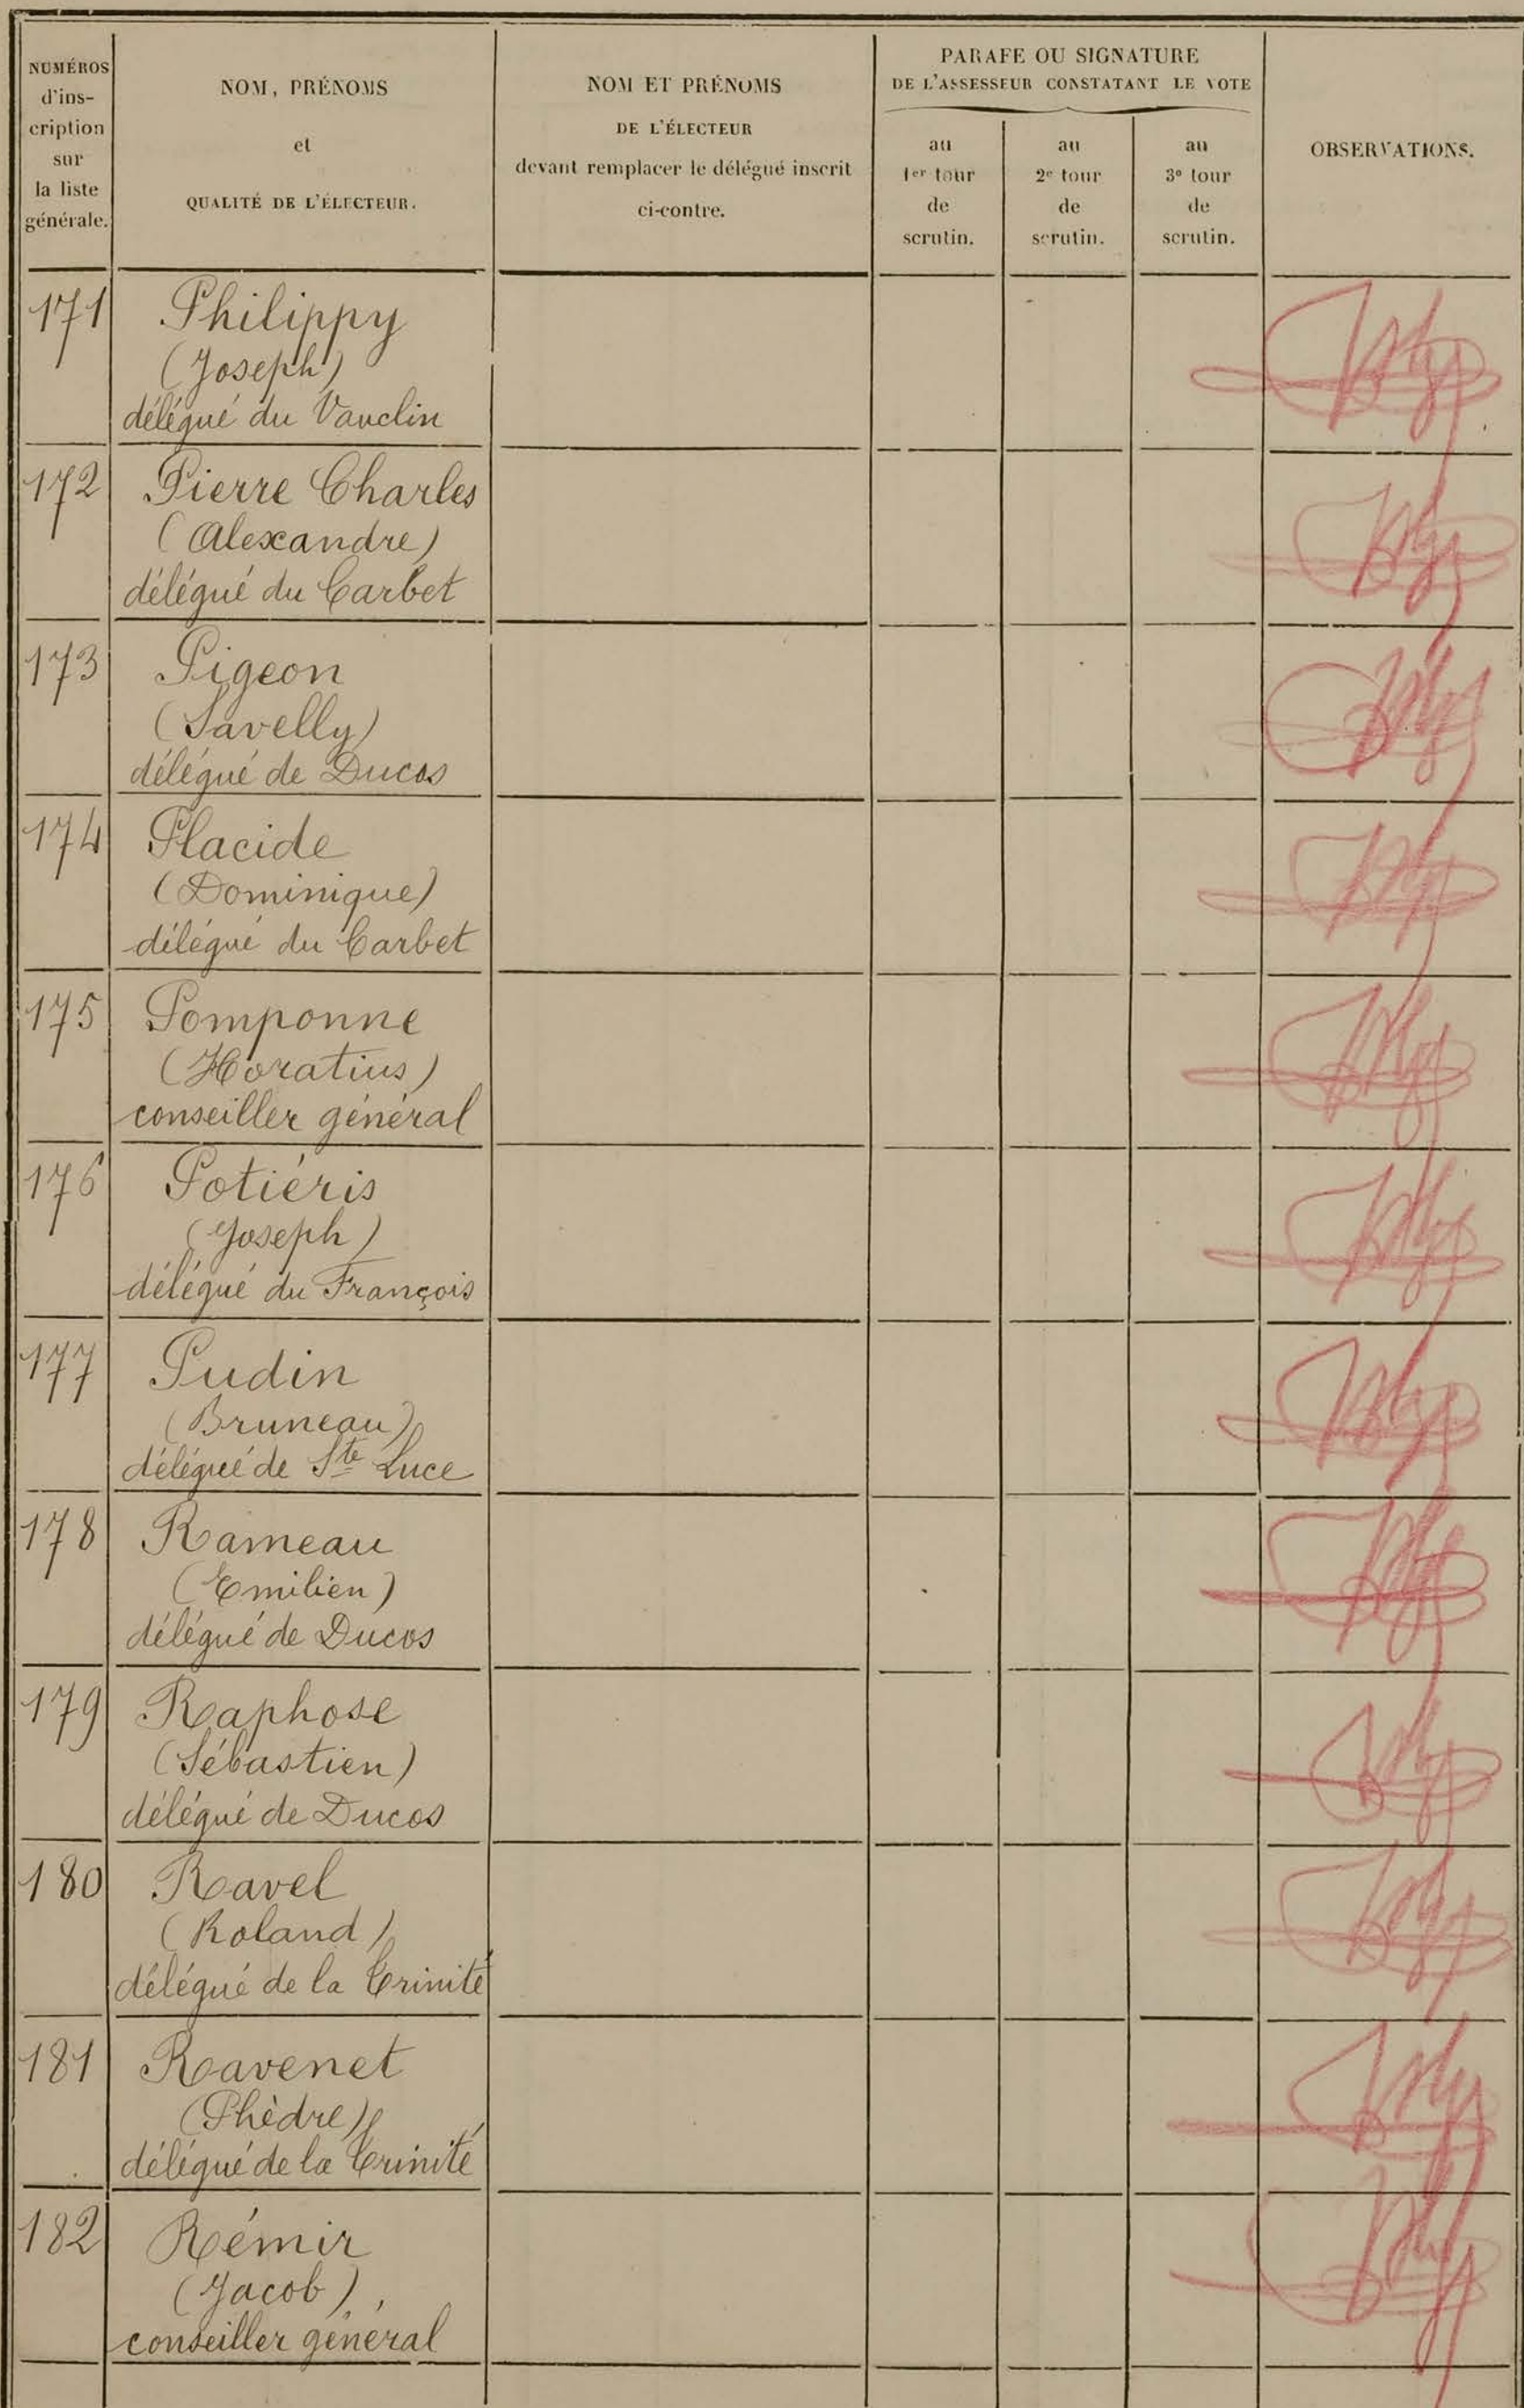 NUMÉROS
d'ins-
cription
sur
la liste
générale.
NOM, PRÉNOMS
et
QUALITÉ DE L'ÉLECTEUR.
NOM ET PRÉNOMS
DE L'ÉLECTEUR
devant remplacer le délégué inscrit
ci-contre.
PARAFE OU SIGNATURE
DE L'ASSESSEUR CONSTATANT LE VOTE
au
1er tour
de
scrutin.
au
2e tour
de
scrutin.
au
3e tour
de
scrutin.
OBSERVATIONS.
171 Philippy
(Joseph)
délégué du Vauclin
172 Pierre Charles
(Alexandre)
délégué du Carbet
173 Pigeon
(Savelly)
délégué de Ducos
174 Placide
(Dominique)
délégué du Carbet
175 Pomponne
(Horatius)
conseiller général
176 Potiéris
(Joseph)
délégué du François
177 Pudin
(Bruneau)
délégué de Ste Luce
178 Rameau
(Emilien)
délégué de Ducos
179 Raphose
(Sébastien)
délégué de Ducos
180 Ravel
(Roland)
délégué de la Trinité
181 Ravenet
(Phèdre)
délégué de la Trinité
182 Rémir
(Jacob)
conseiller général